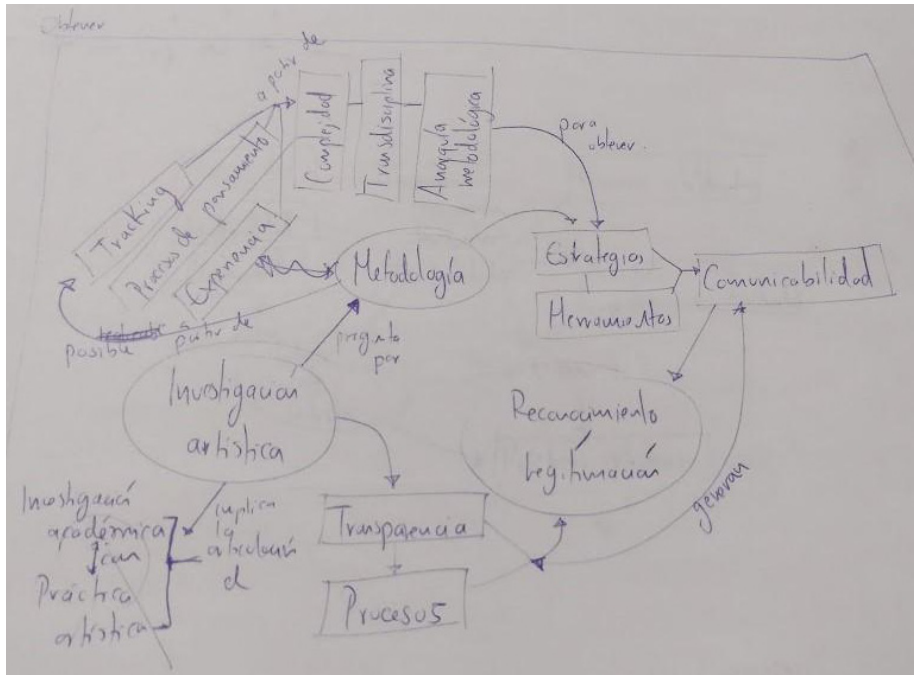 Obtener
a partir de
Tracking
Proceso de pensamiento
Experiencia
Complejidad
Transdisciplina
Anarquía
metodológica
para
obtener.
Metodología
Estrategias
Herramientas
Comunicabilidad
posible
a partir de
pregunta
por
Investigación
artística
Reconocimiento
/
Legitimación
generan
Investigación
académica
con
Práctica
artística
implica
la
articulación
d
Transparencia
Procesos